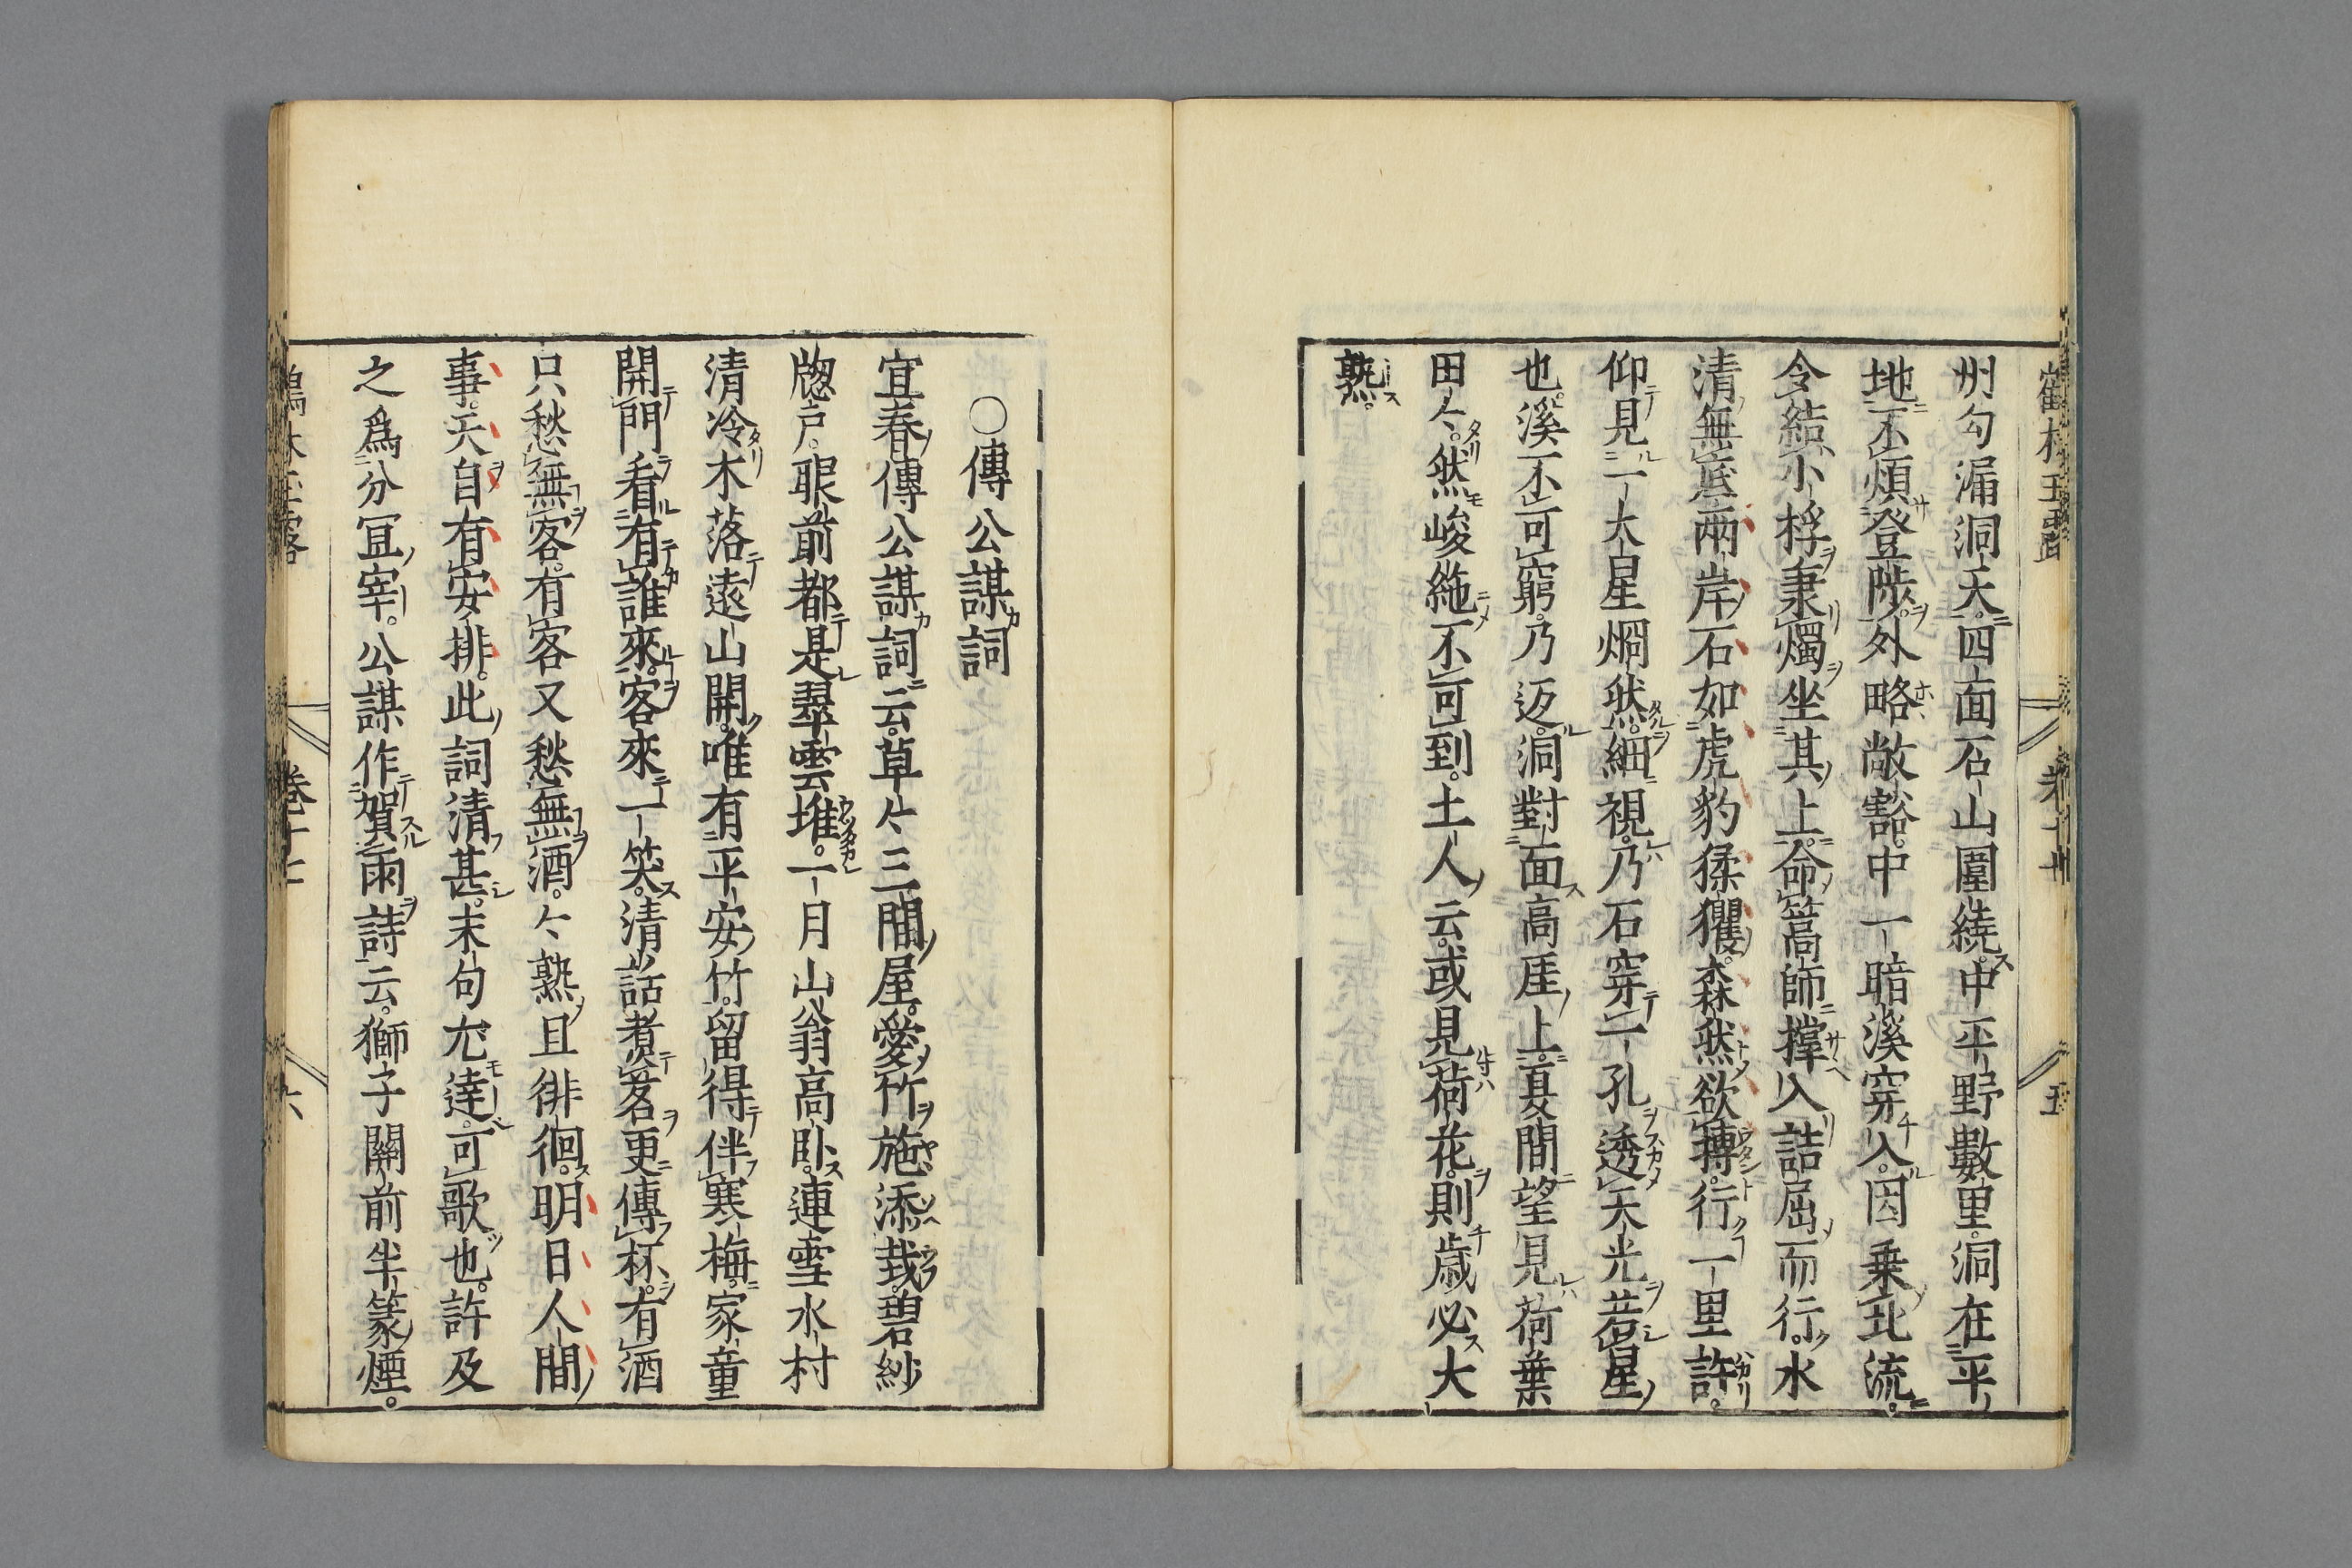 州勾漏洞天四面石山圍繞中平野數里洞在平
地不煩登陟外略敞豁中一暗溪穿入因乗北流
令結小桴秉燭坐其上命篙師撑入詰屈而行水
清無底兩岸石如虎豹猱玃森然欲搏行一里許
仰見一大星烱然細視乃石穿一孔透天光若星
也溪不可窮乃返洞對面高厓上夏間望見荷葉
田々然峻絁不可到土人云或見荷花則歳必大
熟
○傳公謀詞
宜春傳公謀詞云草々三間屋愛竹施添栽碧紗
牎戸眼前都是翠雲堆一月山翁高卧連雪水村
清冷木落遠山開唯有平安竹留得伴寒梅家童
開門看有誰來客來一笑清話煮茗更傳杯有酒
只愁無客有客又愁無酒々熟且徘徊明日人間
事天自有安排此詞清甚末句尤達可歌也許及
之爲分冝宰公謀作賀雨詩云獅子關前半篆煙
卷十六
六